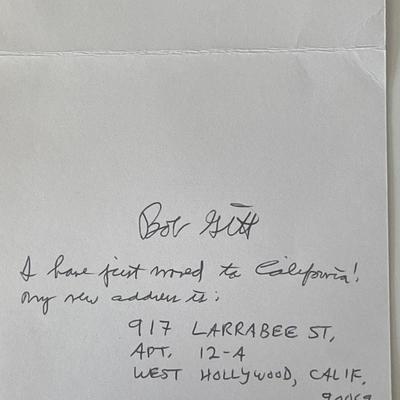 Bob Gitt
I have just moved to California!
My new address is:
917 LARRABEE ST,
APT. 12-A
WEST HOLLYWOOD, CALIF.
90069